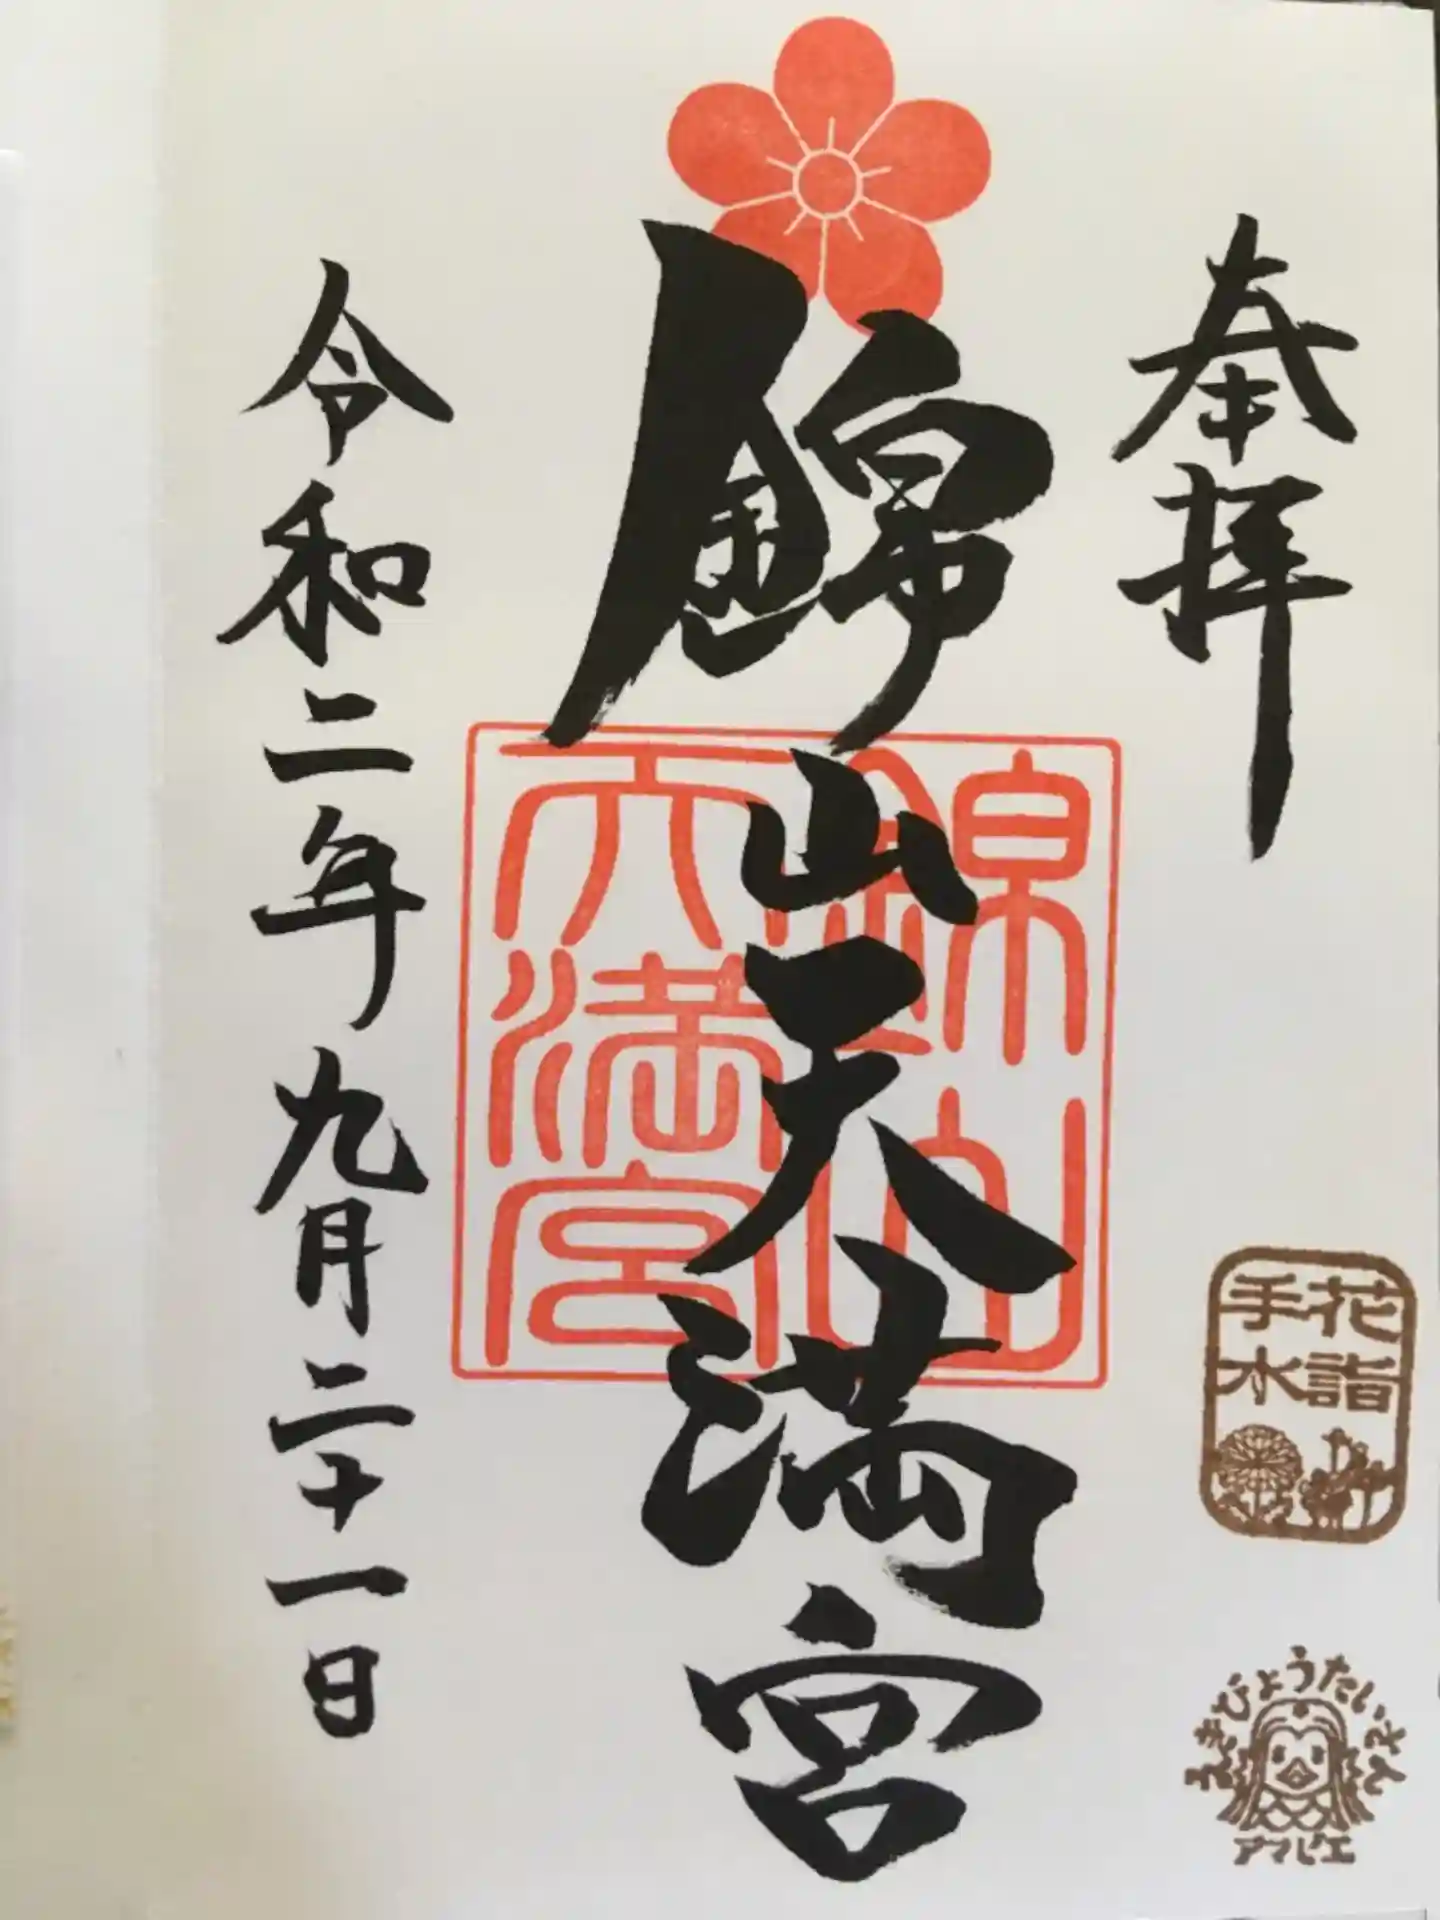 奉拝
花詣
手水
えきびょうたいさん
アマビエ
錦山天満宮
錦山
天満宮
令和二年九月二十一日